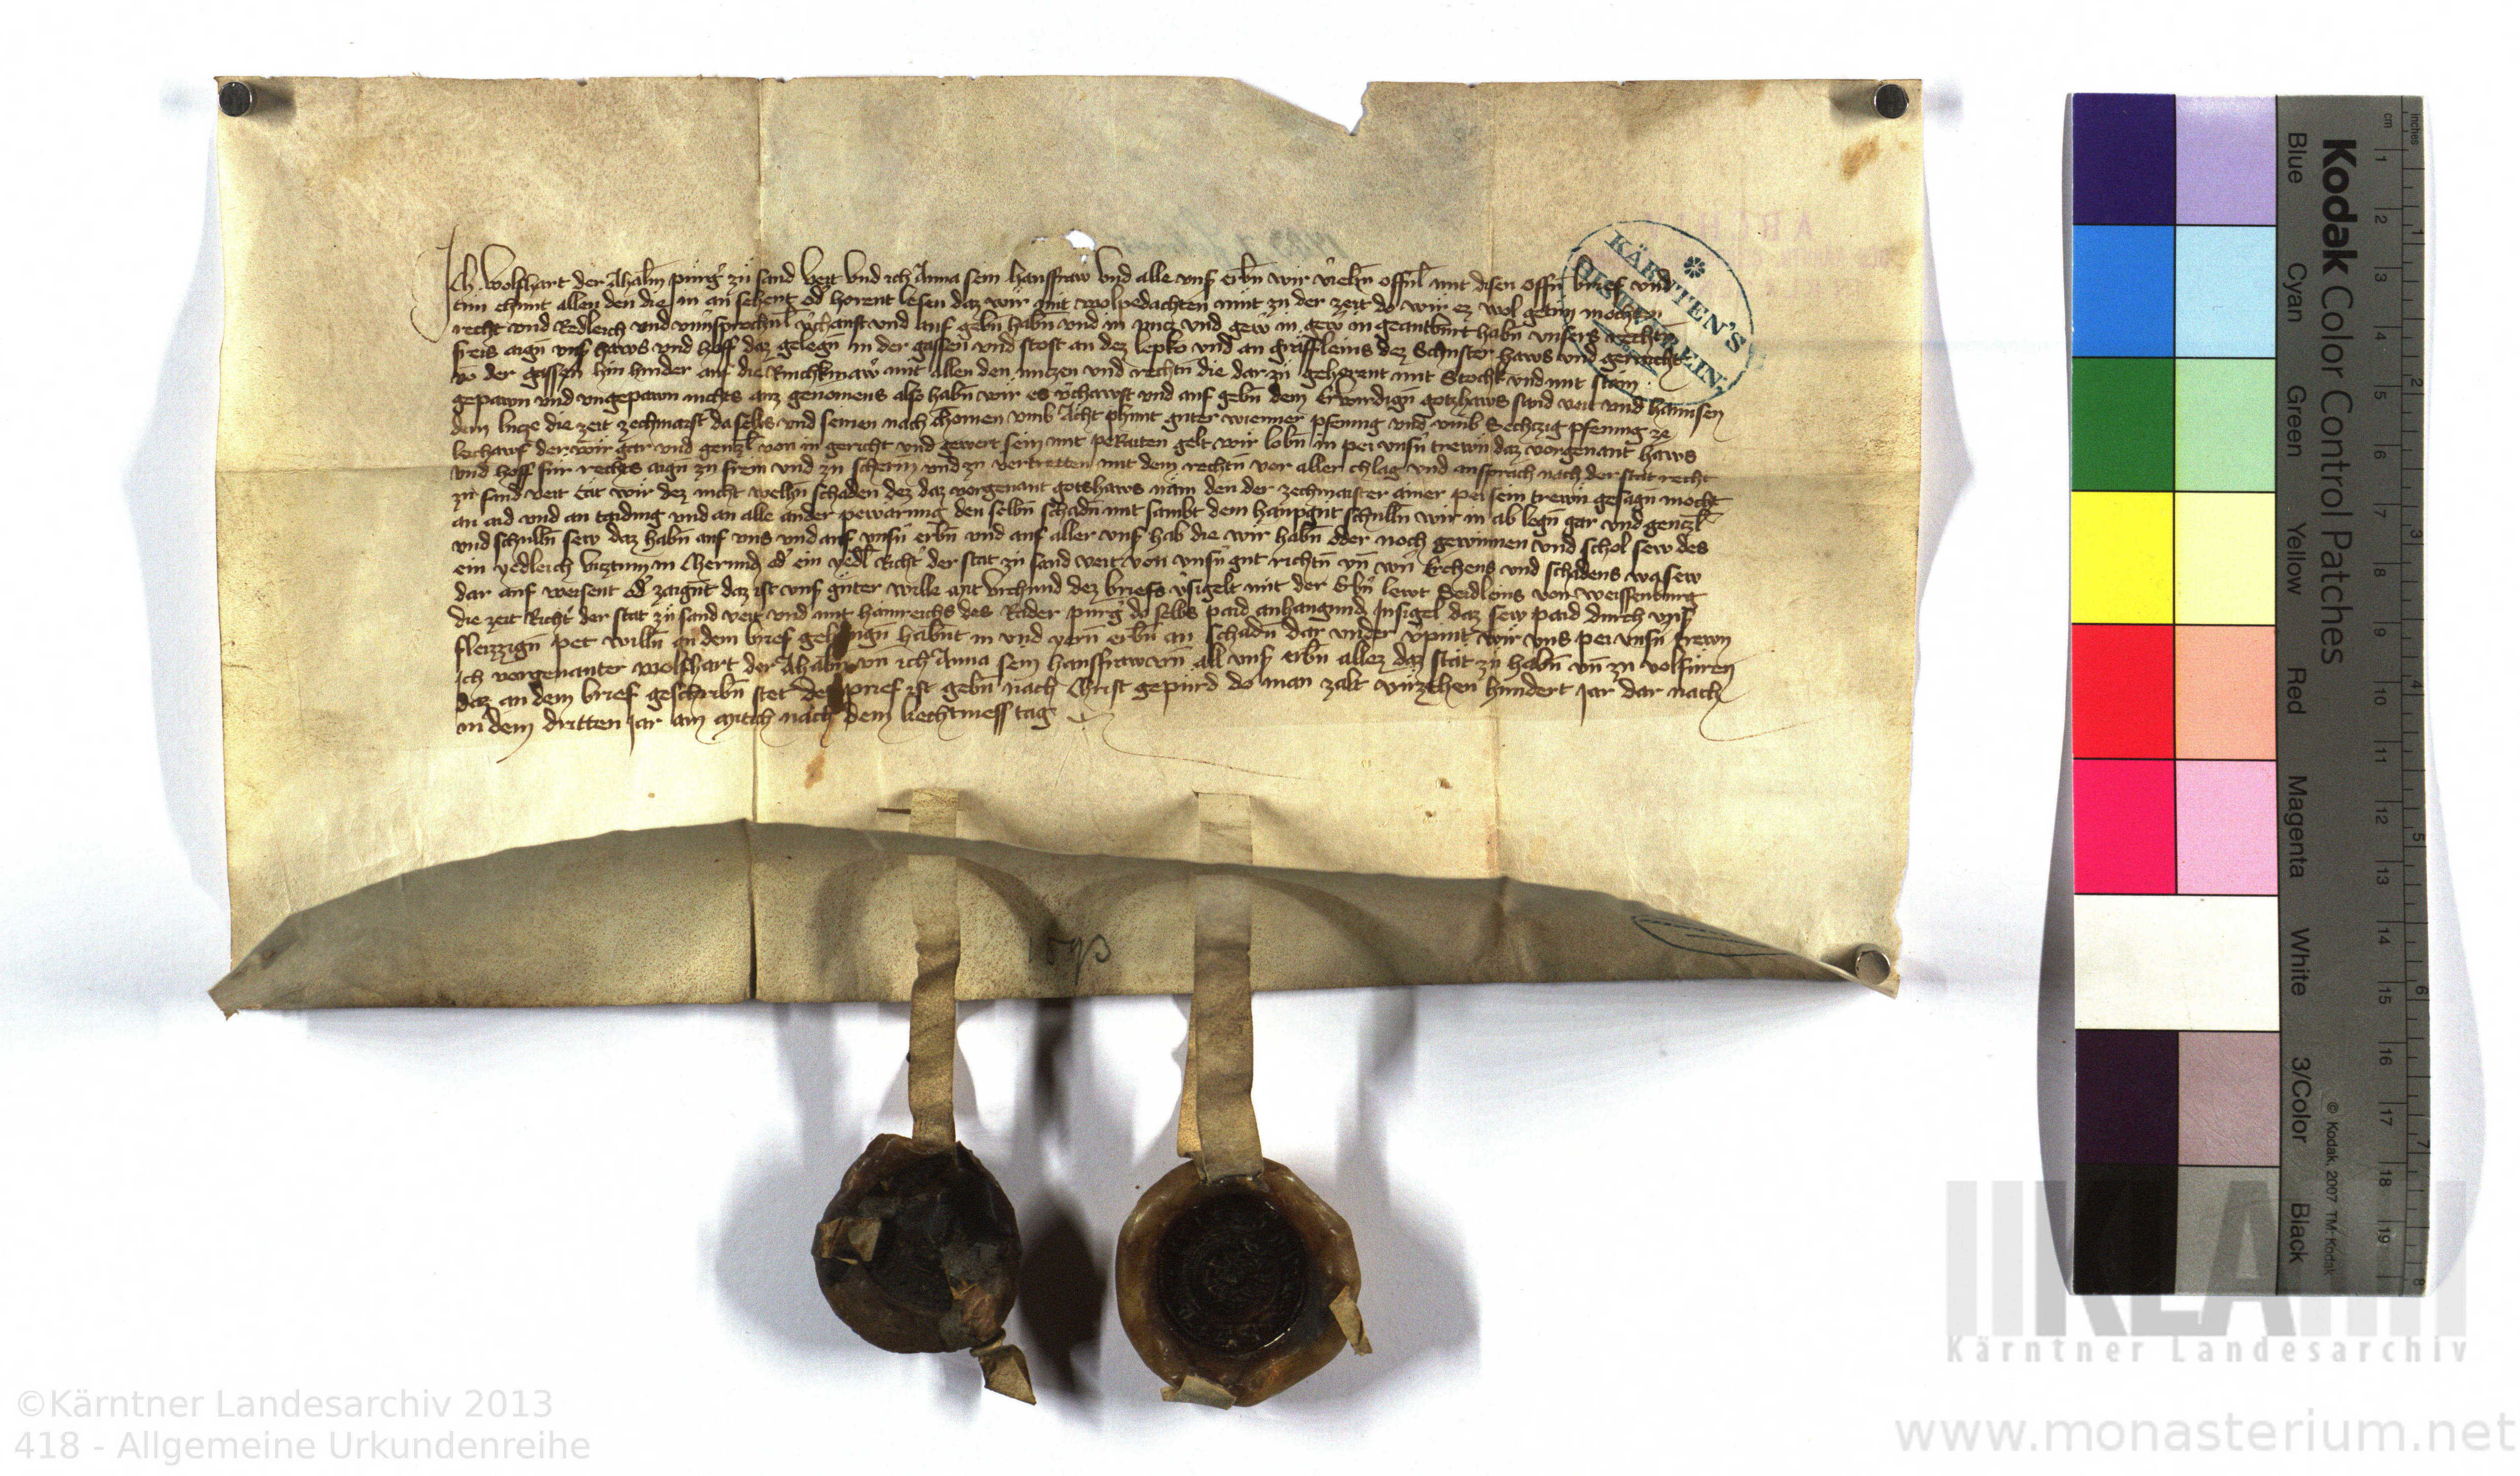 Ich wolfhart der Ahalm̄ purg̉ zu sand veit vnd ich Anna sein hausfraw vnd alle vnß erbn̄ wir v̉iehn̄ offnl̄ mit disen offn̄ brief vnd
tun chunt allen den die in an sehent od̉ horent lesen daz wir mit wolpedachten mut zu der zeit do wir ez wol getun mochten
recht vnd Redleich vnd vnu̇nsprochnl̄ v̉chauft vnd auf gebn̄ habn̄ vnd in nucz vnd gew̉ in geantburt habn̄ vnsers rechtn̄
freis aign̄ vnß haws vnd hoff daz gelegn̄ in der gassen vnd stost an dez lepko vnd an graffleins dez Schuster haws vnd gericht
vo̅ der gassen hin hinder auf die Rinchkmaw̉ mit allen den nutzen vnd rechtn̄ die dar zu gehorent mit Stockh vnd mit stain
gepawn vnd vngepawn nichts auz genomens also habn̄ wir es v̉chawft vnd auf gebn̄ dem Erwirdign̄ gotzhaws sand veit vnd hannsen
dem lucze die zeit zechmaist̉ daselbs vnd seinen nach chomen vmb Acht phunt guter wienner pfenning vnd vmb Sechtzig pfenning ze
leichawf der wir gar vnd gentzl̄ von in gericht vnd gewert sein mit peRaiten gelt wir lobn̄ in pei vnsn̉ trewn̄ daz vorgenant haws
vnd hoff fur rechts aign̄ zu frein vnd zu scherm̄ vnd zu vertretten mit dem rechtn̄ vor aller chlag vnd ansprach nach der stat recht
zu sand veit Tät wir dez nicht welhn̄ schaden dez daz vorgenant gotshaws näm den der zechmaister ainer pei sein trewn̄ gesagn̄ mocht
an aid vnd an taiding vnd an alle ander pewarung den selbn̄ schadn̄ mit sambt dem haupgut schulln̄ wir in ab legn̄ gar vnd gentzl̄
vnd schulln̄ sew daz habn̄ auf vns vnd auf vnsn̉ erbn̄ vnd auf aller vnß hab die wir habn̄ oder noch gewinnen vnd schol sew des
ein yedleich viztum in Chernnd̄ od̉ ein yedl̄ Richt̉ der stat zu sand veit von vnsn̉ gut richtn̄ vn̄ wn̉ Erchens vnd schadens wa sew
dar auf weisent od̉ zaignt̄ daz ist vnß guter wille mit vrchund dez briefs v̉sigelt mit der Erbn̉ lewt Seidleins von weissenburg
die zeit Richt̉ der stat zu sand veit vnd mit hainreichs des Rader purg̉ do selbs paid anhangund Insigel daz sew paid durch vnß
fleizzign̄ pet willn̄ an dem brief gehangn̄ habnt̄ in vnd yern̄ erbn̄ an schadn̄ dar vnder v̉pint wir vns pei vnsn̉ trewn
ich vorgenanter wolfhart der Ahalm̄ vn̄ ich Anna sein hausfraw vn̄ all vnß erbn̄ allez daz stät zu habn̄ vn̄ zu volfuren
daz an dem brief geschribn̄ stet der prief ist gebn̄ nach Christ gepurd do man zalt virzthen hundert jar dar nach
in dem dritten jar am mitich nach dem liechtmess tag
KÄRNTEN'S
Kodak Color Control Patches
Blue Cyan Green Yellow Red Magenta White 3/Color Black
cm 1 2 3 4 5 6 7 8 9 10 11 12 13 14 15 16 17 18 19
inches 1 2 3 4 5 6 7 8
© Kodak, 2007 TM: Kodak
KLA
Kärntner Landesarchiv
©Kärntner Landesarchiv 2013
418 - Allgemeine Urkundenreihe
www.monasterium.net